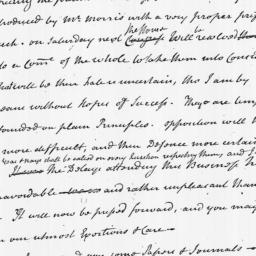 troduced by Mr Morris with a very proper
on Saturday next the House will resolve
a Come of the whole to take them into
will be their fate uncertain, tho I am by
means without hopes of Success. They are
founded on plain Principles. opposition will
more difficult, and their Defence more certain
yeas & nays shall be called on every question respecting them, and
The Delays attending this Business
unavoidable and rather unpleasant than
It will now be pressed forward, and you may
on our utmost Exertions & Care
you some Papers & Journals